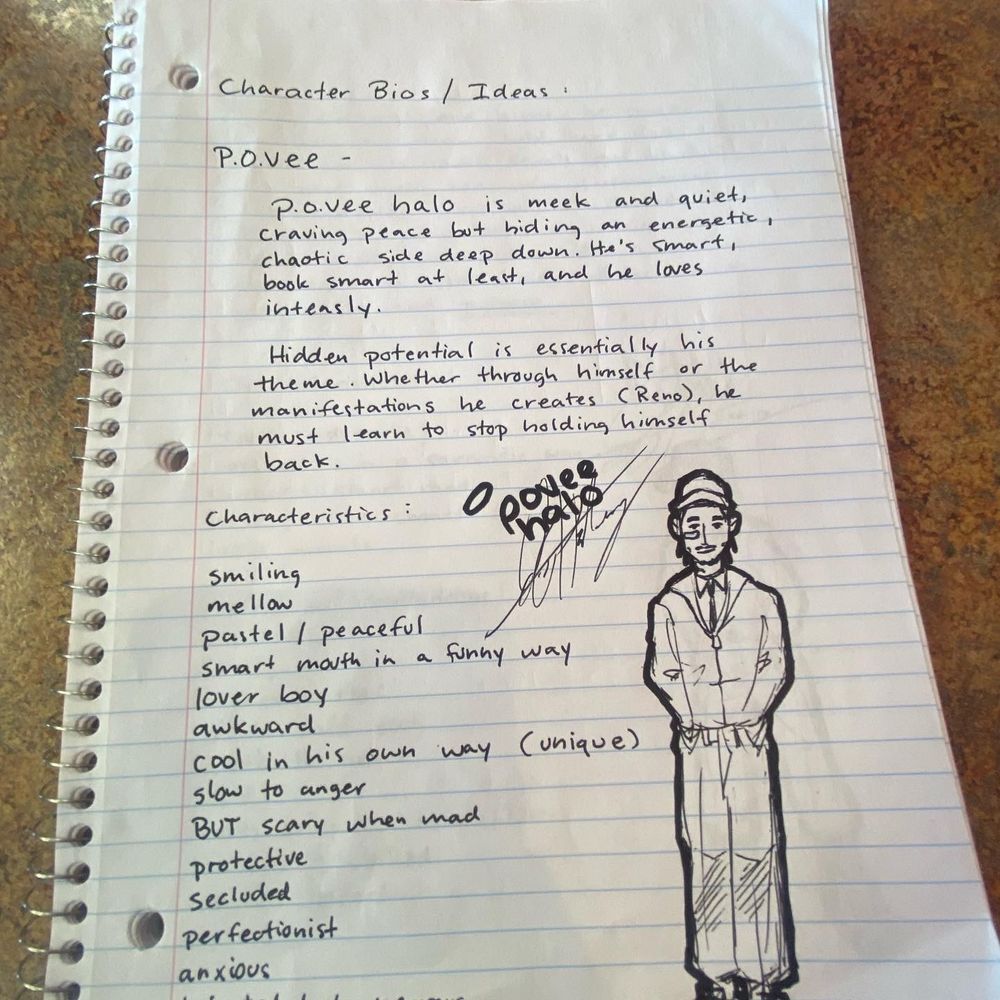 Character Bios / Ideas :
P.O.Vee -
P.O.Vee halo is meek and quiet,
craving peace but hiding an energetic,
chaotic side deep down. He's smart,
book smart at least, and he loves
intensly.
Hidden potential is essentially his
theme. Whether through himself or the
manifestations he creates (Reno), he
must learn to stop holding himself
back.
Povee
halo
Characteristics :
smiling
mellow
pastel / peaceful
smart mouth in a funny way
lover boy
awkward
cool in his own way (unique)
slow to anger
BUT scary when mad
protective
secluded
perfectionist
anxious